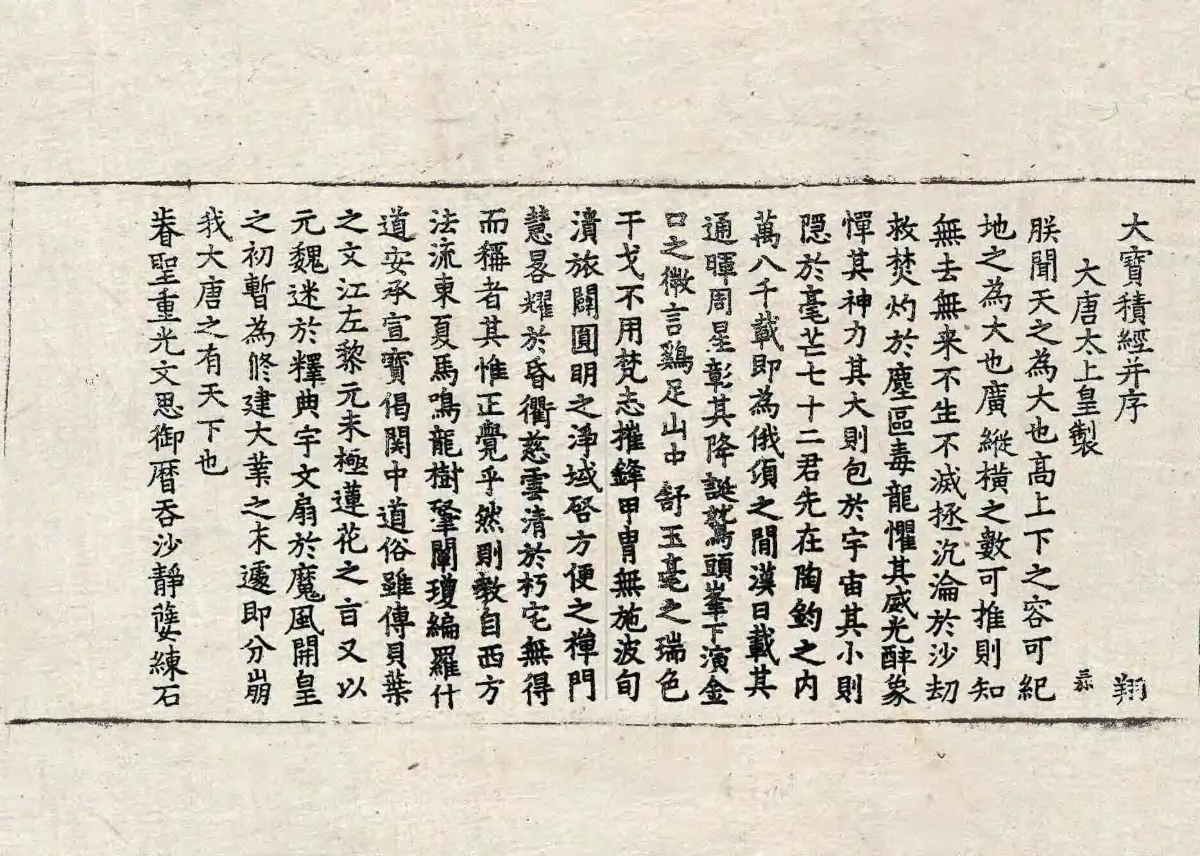 大寶積經并序 翔
大唐太上皇製
朕聞天之為大也高上下之容可紀
地之為大也廣縱橫之數可推則知
無去無来不生不滅拯沉淪於沙刧
救焚灼於塵區毒龍懼其威光醉象
憚其神力其大則包於宇宙其小則
隱於毫芒七十二君先在陶鈞之内
萬八千載即為俄頃之間漢日載其
通暉周星彰其降誕鷲頭峯下演金
口之微言鷄足山中舒玉毫之瑞色
干戈不用梵志摧鋒甲胄無施波旬
潰旅闢圓明之淨域啓方便之禪門
慧晷耀於昏衢慈雲清於朽宅無得
而稱者其惟正覺乎然則教自西方
法流東夏馬鳴龍樹肇闡瓊編羅什
道安承宣寳偈関中道俗雖傳貝葉
之文江左黎元未極蓮花之旨又以
元魏迷於釋典宇文扇於魔風開皇
之初暫為修建大業之末遽即分崩
我大唐之有天下也
眷聖重光文思御曆呑沙靜孽練石